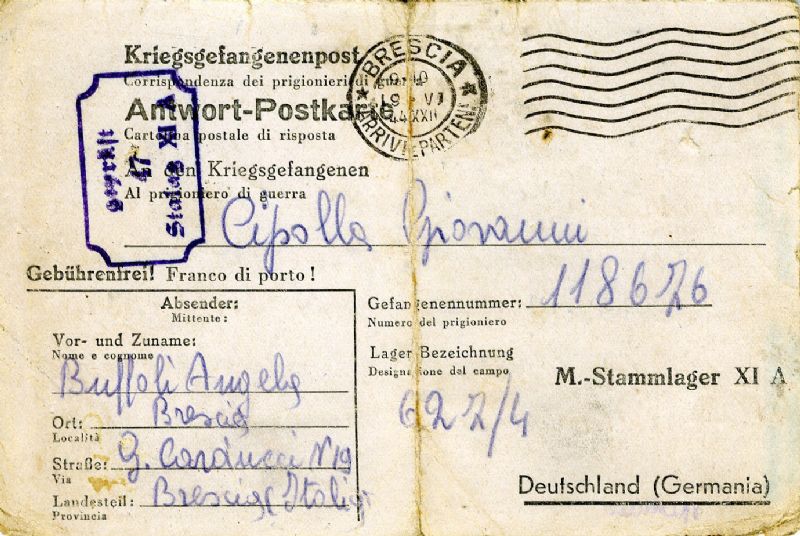 Kriegsgefangenenpost
Corrispondenza dei prigionieri di guerra
Antwort-Postkarte
Cartolina postale di risposta
An den Kriegsgefangenen
Al prigioniero di guerra
Cipolla Giovanni
BRESCIA
19 VI
44 XXII
ARRIVI E PARTENZE
Geprüft
47
Stalag XI A
Gebührenfrei! Franco di porto!
Absender:
Mittente:
Vor- und Zuname:
Nome e cognome
Buffoli Angela
Ort: Brescia
Località
Straße: G. Carducci N 19
Via
Landesteil: Brescia (Italia)
Provincia
Gefangenennummer: 118676
Numero del prigioniero
Lager Bezeichnung
Designazione del campo
M.-Stammlager XI A
627/4
Deutschland (Germania)